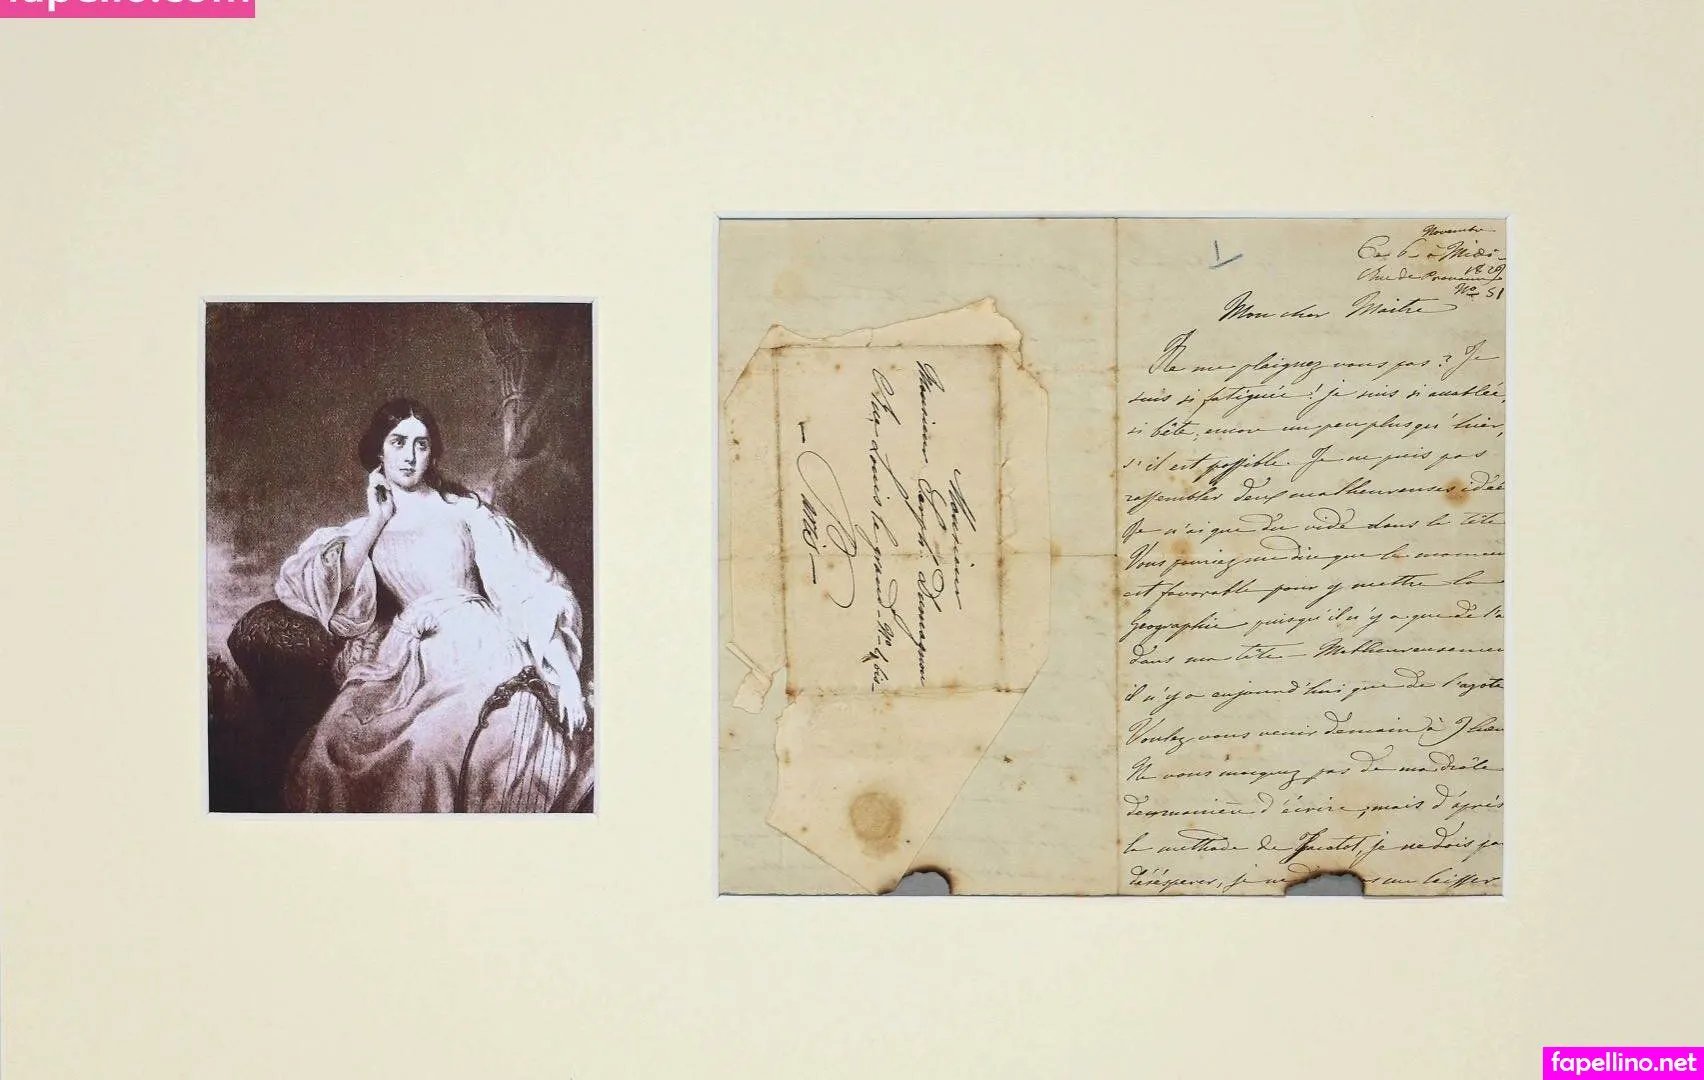 fapello.com
Novembre
Ce 6 à Midi
1829
Rue de Provence
No 51
Mon cher Maitre
Ne me plaignez vous pas? Je
suis si fatiguée! je suis si accablée,
si bête, encore un peu plus qu'hier,
s'il est possible. Je ne puis pas
rassembler deux malheureuses idées
Je n'ai que du vide dans la tête
Vous pourriez me dire que le momen
est favorable pour y mettre la
Géographie puisqu'il n'y a que de l'a
dans ma tête - Malheureusemen
il n'y a aujourd'hui que de l'azote
Voulez vous venir demain à 7 heu
Ne vous moquez pas de ma drôle
de manière d'écrire, mais d'après
la méthode de Jacotot, je ne dois pa
désespérer, je ne me laisser
Monsieur
Monsieur Joseph
Rue Louis le grand No 9 bis
Paris
fapellino.net